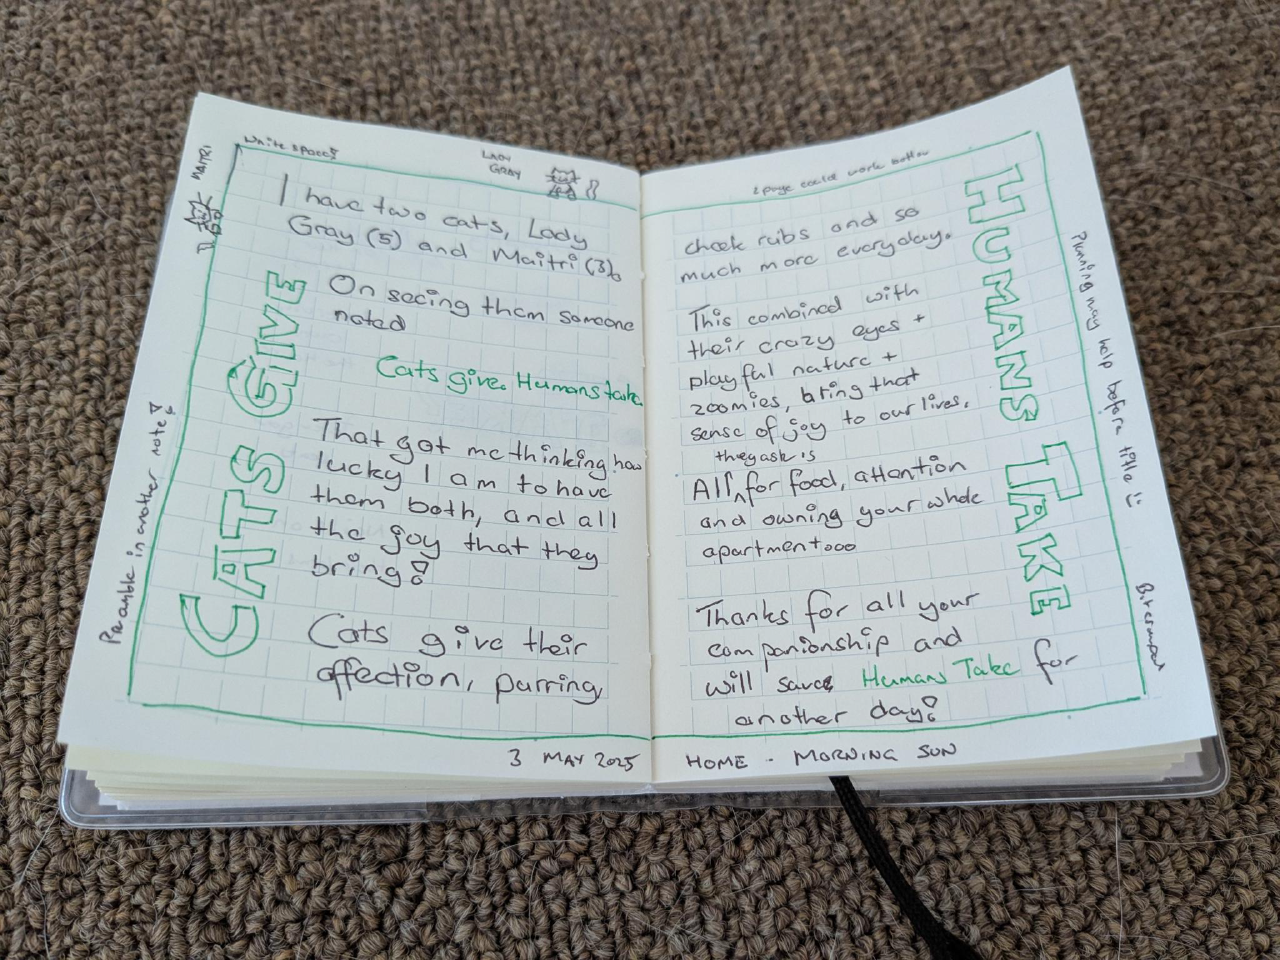 White space!
LADY
GRAY
MAITRI
CATS GIVE
I have two cats, Lady
Gray (5) and Maitri (3).
On seeing them someone
noted
Cats give. Humans take.
That got me thinking how
lucky I am to have
them both, and all
the joy that they
bring!
Cats give their
affection, purring,
Preamble in another note!
3 MAY 2025
1 page could work better
HUMANS TAKE
cheek rubs and so
much more everyday.
This combined with
their crazy eyes +
playful nature +
zoomies, bring that
sense of joy to our lives.
they ask is
All for food, attention
and owning your whole
apartment...
Thanks for all your
companionship and
will save Humans Take for
another day!
Planning may help before title :)
HOME - MORNING SUN